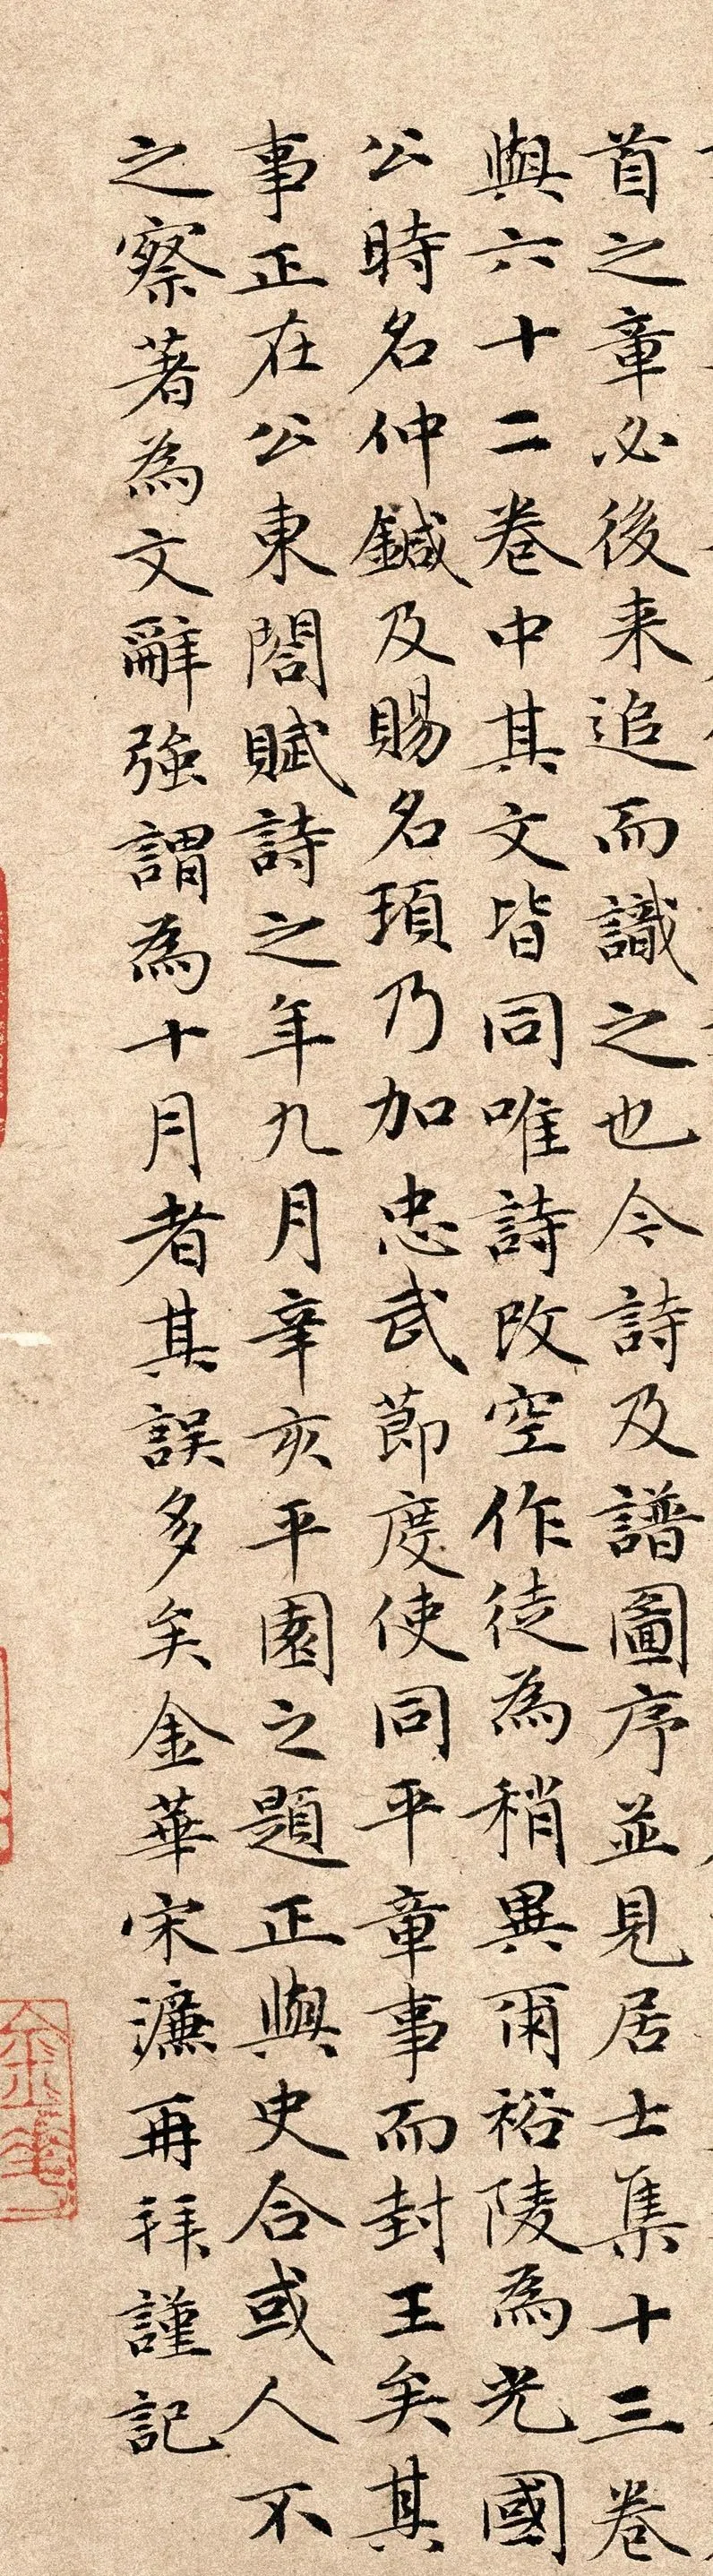 首之章必後来追而識之也今詩及譜圖序並見居士集十三卷
與六十二卷中其文皆同唯詩改空作徒為稍異爾裕陵為光國
公時名仲鍼及賜名頊乃加忠武節度使同平章事而封王矣其
事正在公東閤賦詩之年九月辛亥平園之題正與史合或人不
之察著為文辭強謂為十月者其誤多矣金華宋濂再拜謹記
金華